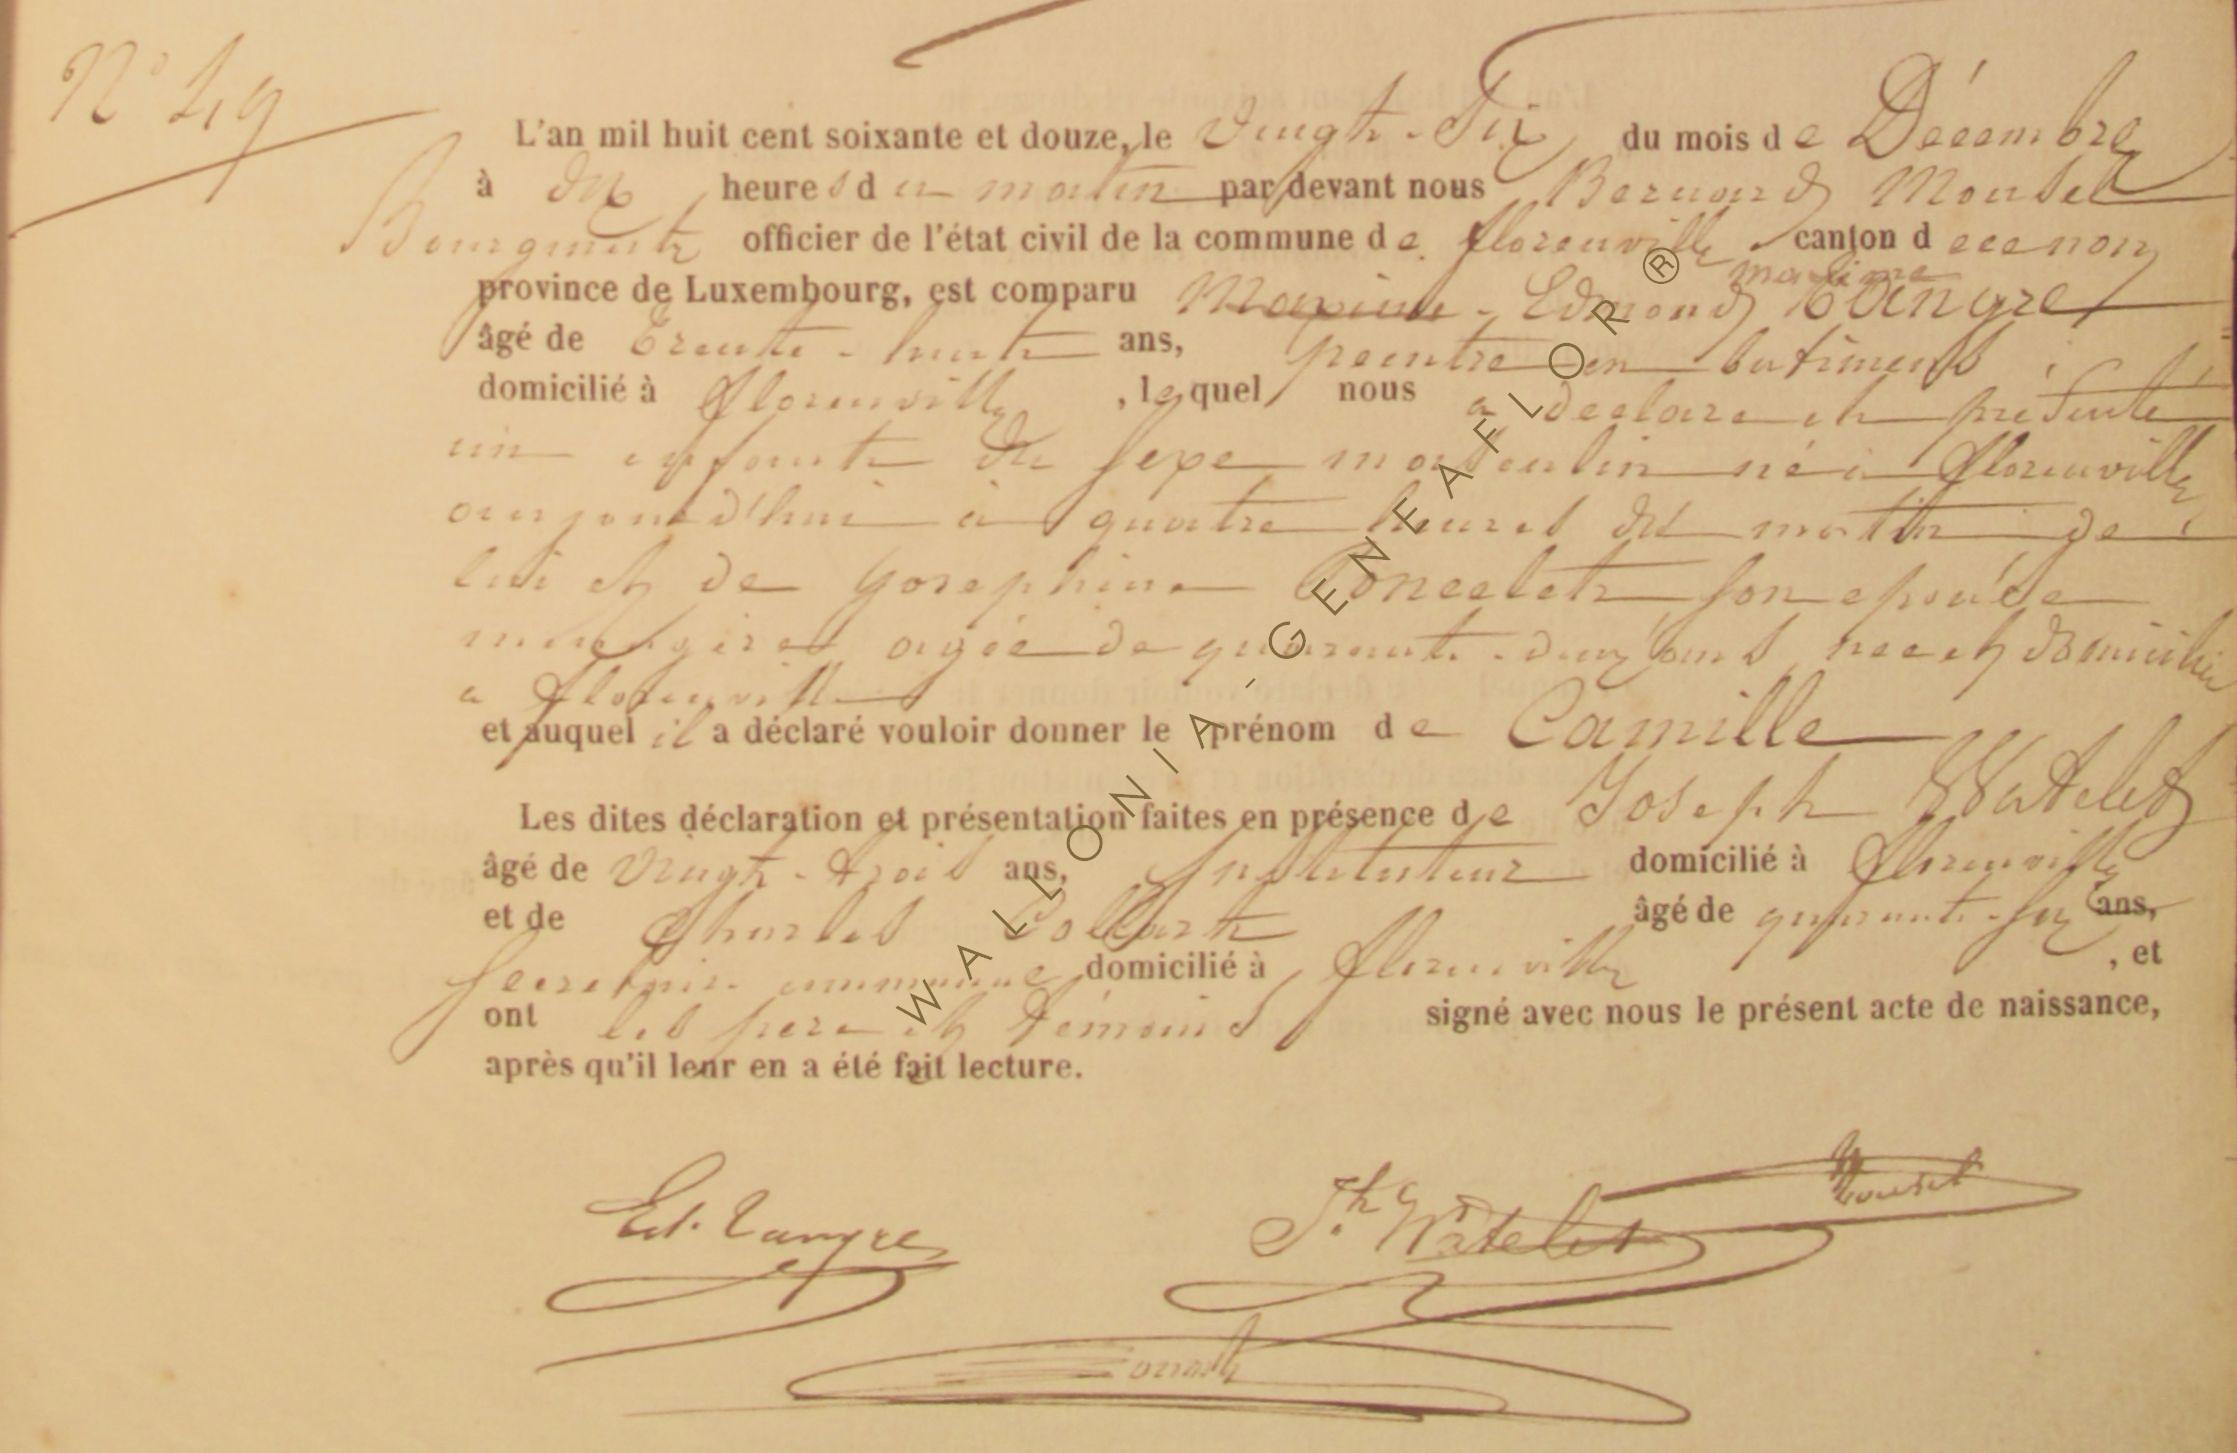 N° 49
L'an mil huit cent soixante et douze, le Vingt-Six du mois de Décembre
à dix heures du matin par devant nous Bernard Mousel
Bourgmestre officier de l'état civil de la commune de florenville canton
province de Luxembourg, est comparu Maxime - Edmond maxime Tangre
âgé de Trente-huit ans, peintre en batiments
domicilié à florenville, lequel nous a declare et présenté
un enfant du sexe masculin né à florenville
aujourd'hui à quatre heures du matin de
lui et de Josephine Poncelet son epouse
menagere agée de quarante-deux ans, nee et domicilie
a florenville
et auquel il a déclaré vouloir donner le prénom de Camille
Les dites déclaration et présentation faites en présence de Joseph Watelet
âgé de vingt-trois ans, Instituteur domicilié à florenville
et de Charles Collart âgé de quarante-six ans,
Secretaire communal domicilié à florenville, et
ont les pere et témoins signé avec nous le présent acte de naissance,
après qu'il leur en a été fait lecture.
Ed. Tangre Jh Watelet Mousel
WALLONIA - GENEAFLOR ®